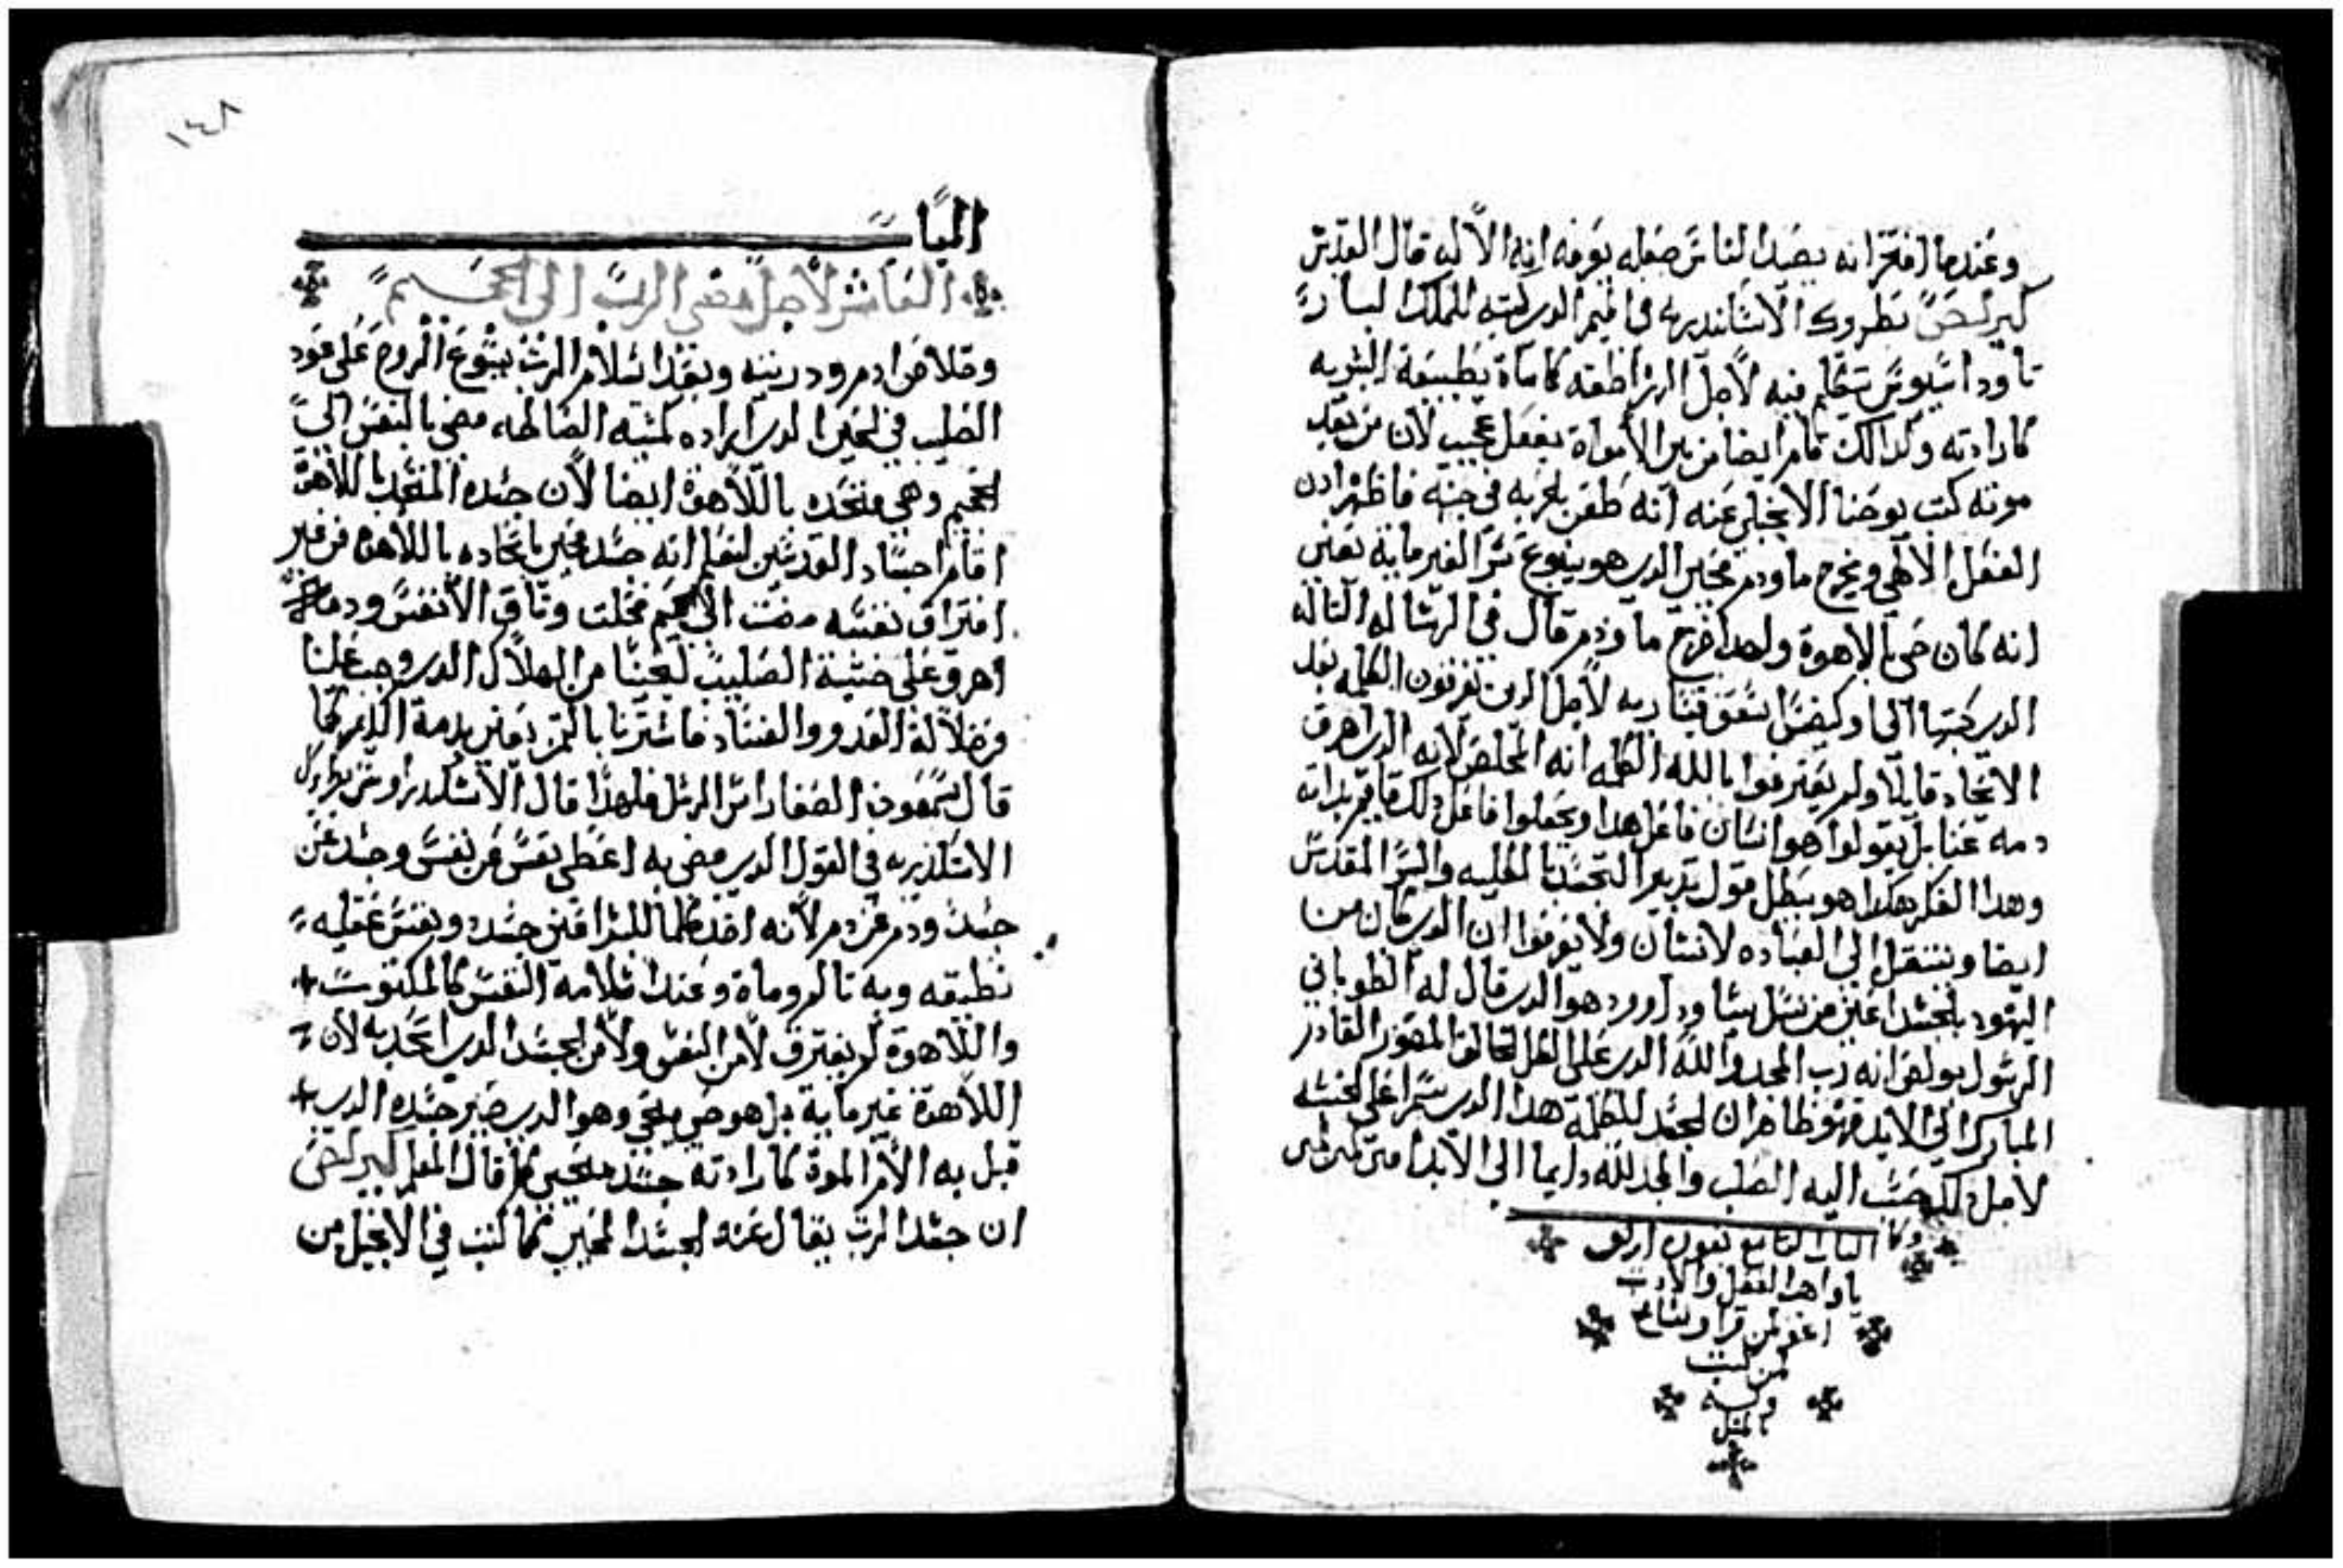 وعندما افتخر انه يصيد الناس صفله يوفه انه الاله قال القديس
كيرلص بطروك الاسكندريه في الميمر الدي كتبه للملك لسان
تاوداسيوس يتكلم فيه لاجل اراطقه كاماة بطبيعة البشريه
كارادته وكدالك قام ايضا من بين الامواة بفعل عجيب لان من بعد
موته كتب يوحنا الانجيلي عنه انه طعن بحربه في جنبه فاظهر ادن
الفعل الالهي ويخرج ما ودم محيي الدي هو ينبوع سر الغير مايه تعني
انه كان حي بالاهوة ولهدا خرج ما ودم قال في الرساله التاله
الدي كتبها الى اوكيضس اسقف قيساريه لاجل الدين يفرقون الكلمه بعد
الاتحاد قايلا ولم يعترفوا بالله الكلمه انه المخلص لانه الدي اهرق
دمه عنا بل يقولوا هو انسان فاعل هدا ويجعلوا فاعل دلك قايم بداته
وهدا الفكر هكدا هو يبطل قول تدبير التجسد بالكليه والسر المقدس
ايضا وينتقل الى العباده لانسان ولا يعرفوا ان الدي كان من
اليهود بالجسد اعني من نسل يسا وداوود هو الدي قال له الطوباني
الرسول بولص انه رب المجد والله الدي على الكل الخالق المصور القادر
المبارك الى الابد فهو ظاهر ان الجسد للكلمة هدا الدي سمرا على الخشبه
لاجل دلك حسب اليه الصلب والمجد لله دايما الى الابد امين امين امين
وكان الباب التاسع بعون ارلق
يا واهب العقل والادب
اغفر لمن قرا وساع
من كتب
وله
بالمثل
١٤٨
الميا
العاشر لاجل مضي الرب الى الجحيم
وخلاص ادم ودريته وبعد اسلام الرب يسوع الروح على عود
الصليب في الحين الدي اراده كمشيه الصالحه مضي بالنفس الى
الجحيم وهي متحده باللاهوة ايضا لان جسده المتحد باللاهوة
اقام اجساد القديسين لنعلم انه جسد محيي باتحاده باللاهوة من غير
افتراق نفسه مضت الى الجحيم فحلت وثاق الانفس ودمه
اهرق على خشبة الصليب لينجنا من الهلاك الدي وجب علينا
من ضلالة العدو والفساد فاشترنا بالثمن يعني بدمة الكريم كما
قال سمعون الصفا راس الرسل فلهدا قال الاسكندروس بطريك
الاسكندريه في القول الدي مضي به اعطي نفس عن نفس وجسد عن
جسد ودم عن دم لانه اخد كلما للبشر اعني جسد ونفس عقليه
نطيقه وبه تالم وماة وعندما سلامه النفس كالمكتوب
واللاهوة لم يفترق لا من النفس ولا من الجسد الدي اتحد به لان
اللاهوة غير ماية بل هو حي محي وهو الدي صير جسده الدي
قبل به الالام الموة كارادته جسد محيي كما قال المعلم كيرلص
ان جسد الرب يقال عنه الجسد المحيي كما كتب في الانجيل من